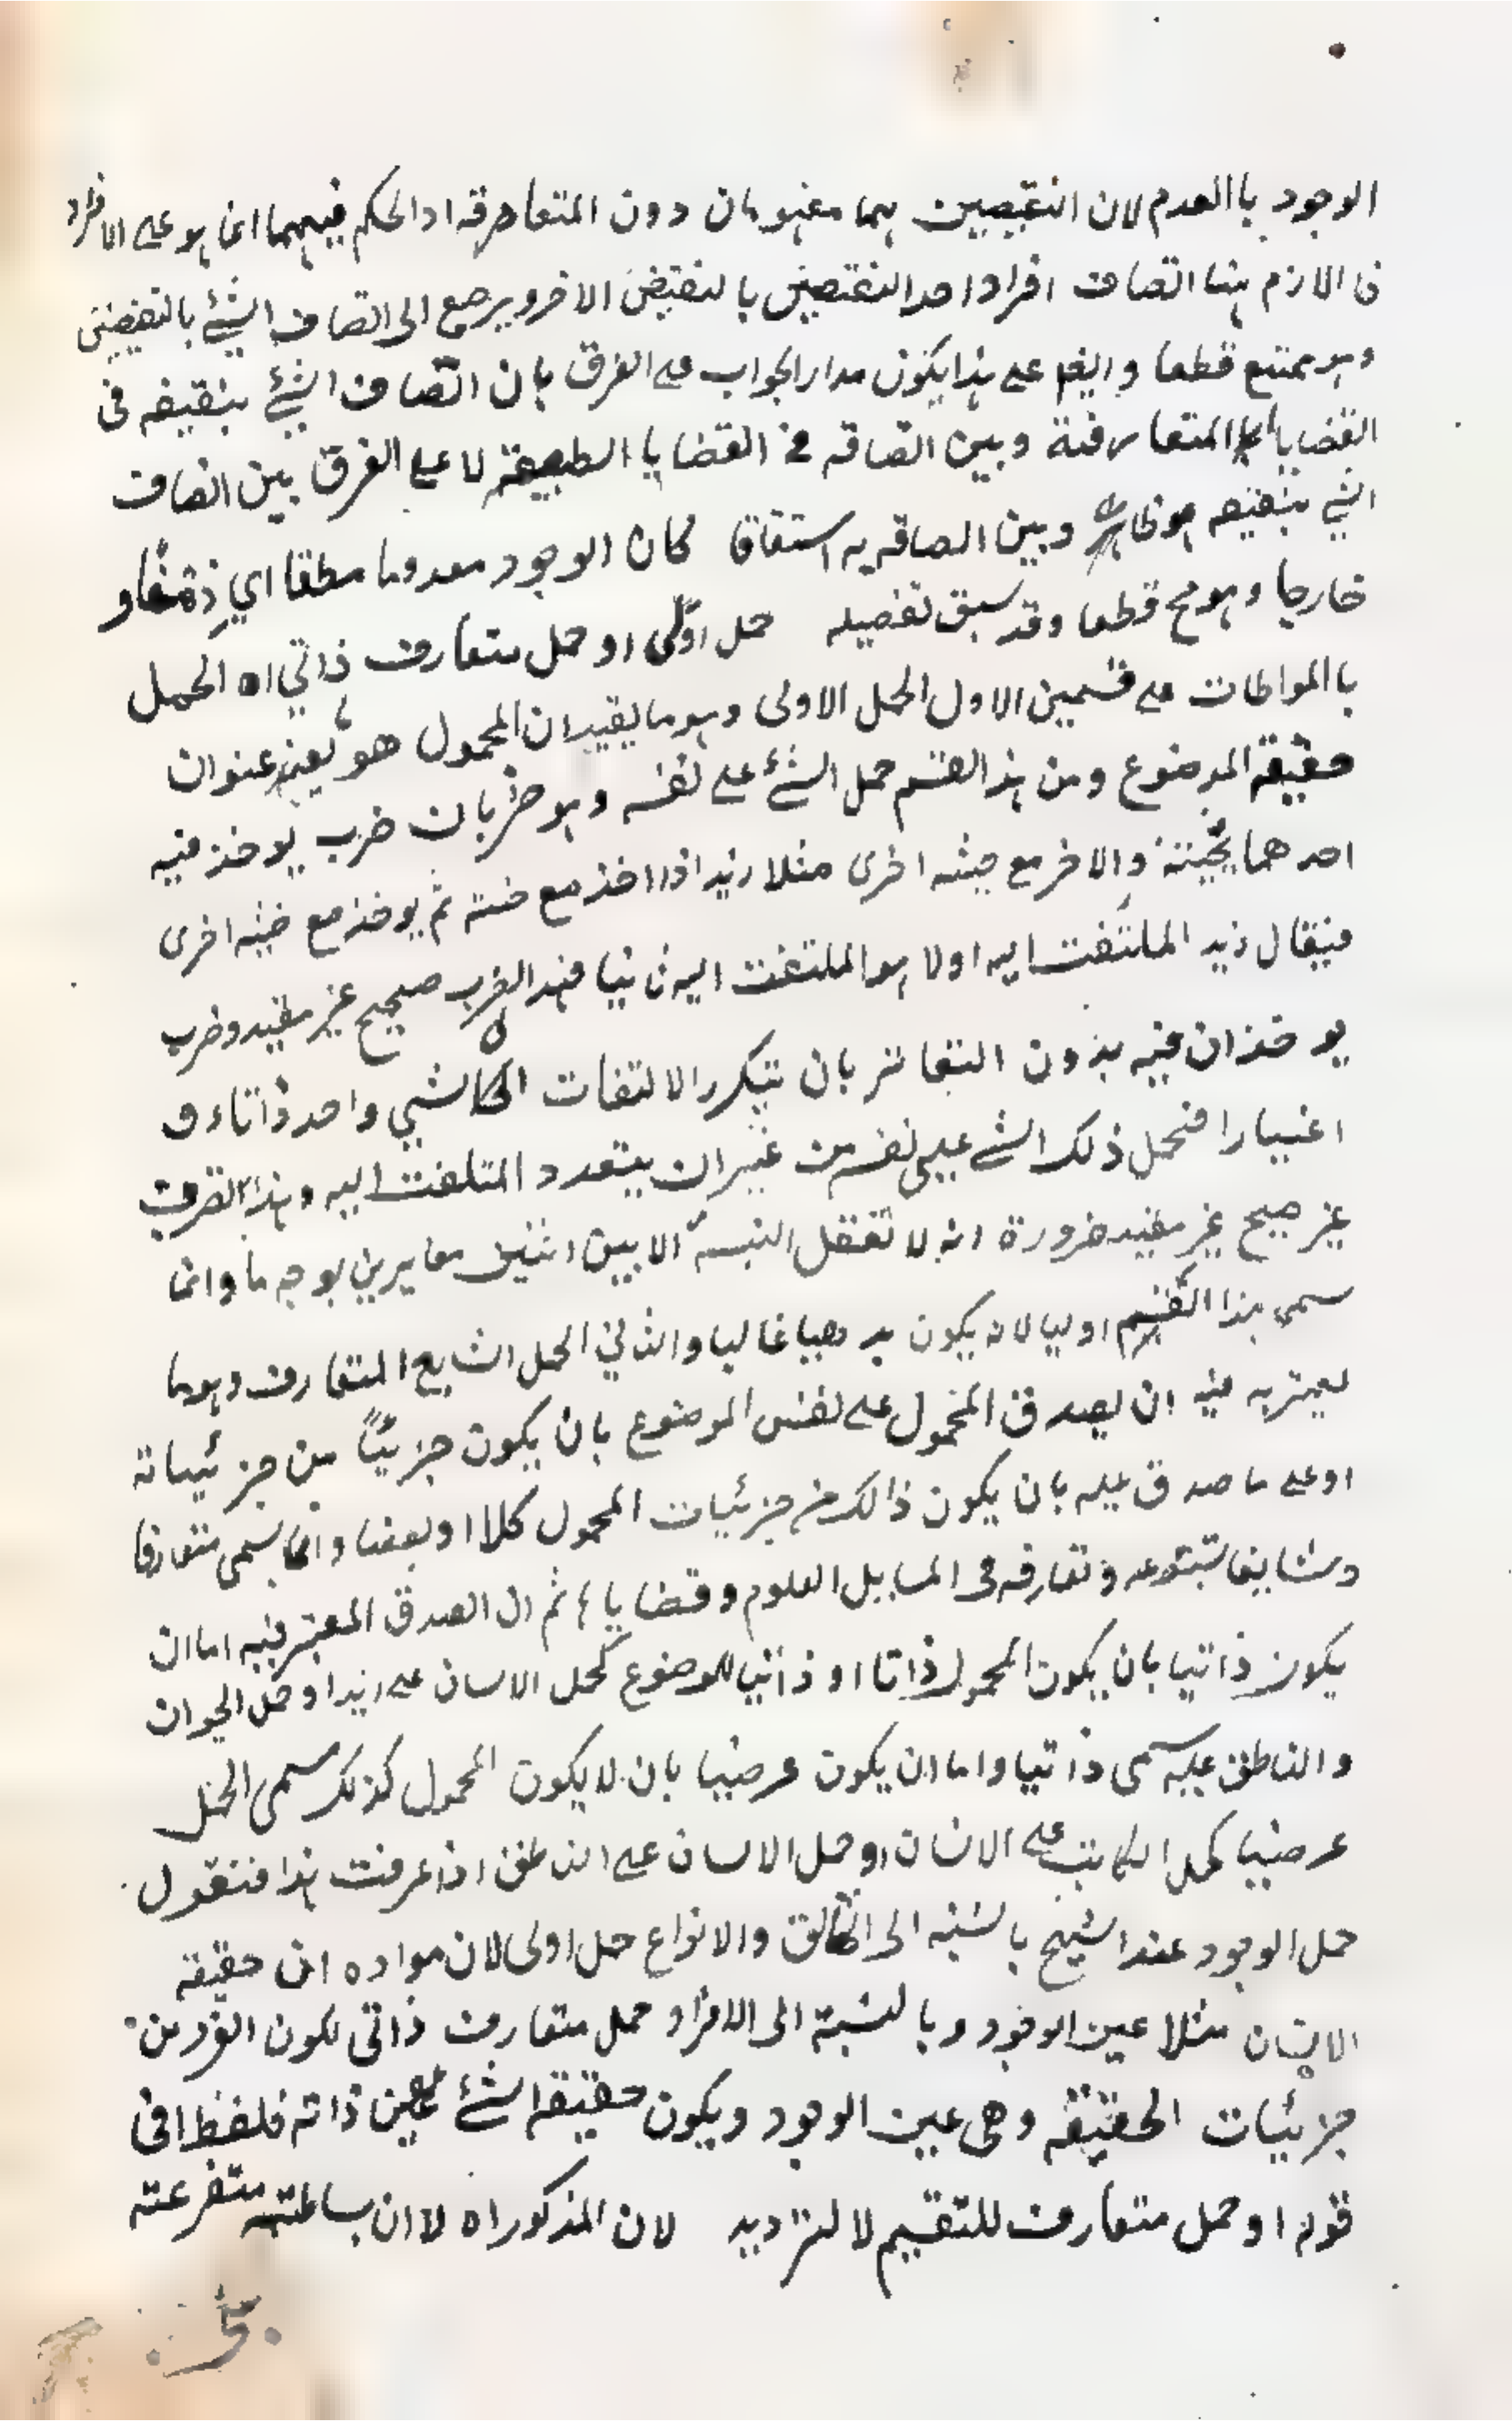 الوجود باالعدم لان النقيضين هما مفهومان دون المتعارفه اذ الحكم فيهما انما هو على الافراد
فاالازم هنا اتصاف افراد احد النقيضين بالنقيض الاخر ويرجع الى اتصاف الشئ بالنقيضين
وهو ممتنع قطعا وايضا على هذا يكون مدار الجواب على الفرق بان اتصاف الشئ بنقيضه فى
القضايا المتعارفة وبين اتصافه فى القضايا الطبعية لا على الفرق بين اتصاف
الشي بنقيضه وبين اتصافه به اشتقاقا كان الوجود معدوما مطلقا اي ذهنا او
خارجا وهو مح قطعا وقد سبق تفصيله حمل اوّلى او حمل متعارف ذاتي اه الحمل
باالمواطات على قسمين الاول الحمل الاولى وهو ما يفيد ان المحمول هو بعينه عنوان
حقيقه الموضوع ومن هذا القسم حمل الشئ على نفسه وهو ضربان ضرب يوخذ فيه
احدهما بحيثية والاخر مع حيثيه اخرى مثلا زيد اذا اخذ مع حيثية ثم يوخذ مع حيثيه اخرى
فيقال زيد الملتفت اليه اولا هو الملتفت اليه ثانيا فهذا الضرب صحيح غير مفيد وضرب
يوخذان فيه بدون التغائر بان يتكرر الالتفات الى شي واحد ذاتا و
اعتبارا فحمل ذلك الشي على نفسه من غير ان يتعدد الملتفت اليه وهذا الضرب
غير صحيح غير مفيد ضرورة انه لا تعقل النسبة الا بين اثنين مغايرين بوجه ما وانما
سمى هذا القسم اوليا لانه يكون بديهيا غالبا والثاني الحمل الشايع المتعارف وهو ما
يعتبر فيه ان يصدق المحمول على نفس الموضوع بان يكون جزئيًا من جزئياته
او على ما صدق عليه بان يكون ذالك من جزئيات المحمول كلا او بعضا وانما يسمى متعارفا
وشايعا لشيوعه وتعارفه فى المسايل العلوم وقضاياها ثم ان الصدق المعتبر فيه اما ان
يكون ذاتيا بان يكون المحمول ذاتا او ذاتيا للموضوع كحمل الانسان على زيد او حمل الحيوان
والناطق عليه سمى ذاتيا واما ان يكون عرضيا بان لا يكون المحمول كذلك سمى الحمل
عرضيا كحمل الكاتب على الانسان او حمل الانسان على الناطق اذا عرفت هذا فنقول
حمل الوجود عند الشيخ بالنسبه الى الحقائق والانواع حمل اولى لان مواده ان حقيقه
الانسان مثلا عين الوجود وبالنسبة الى الافراد حمل متعارف ذاتى لكون الفرد من
جزئيات الحقيقه وهى عين الوجود ويكون حقيقه الشئ عين ذاته فلفظ او فى
قوله او حمل متعارف للتقسيم لا للترديد لان المذكور اه لا ان بساطته متفرعته